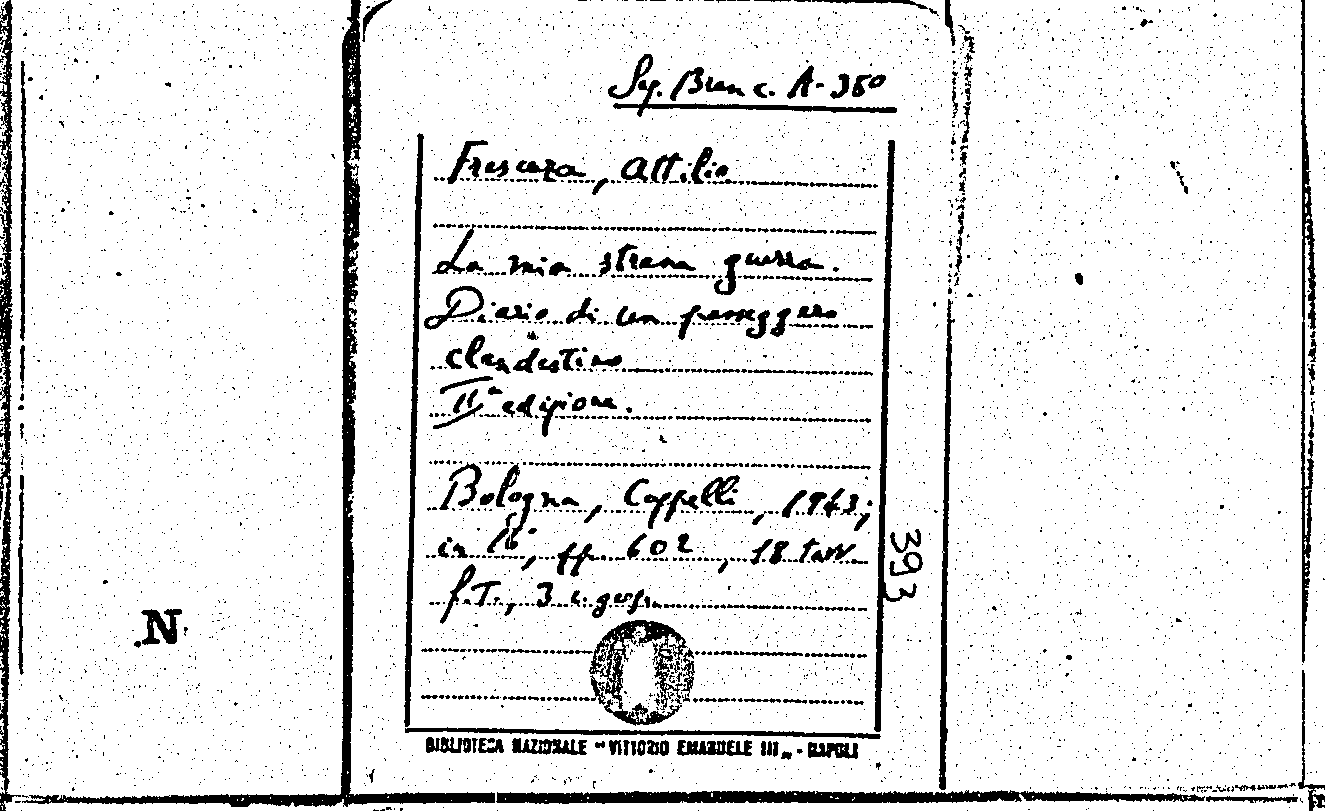 Sez. Branc. A-380
Frescura, Attilio
La mia strana guerra.
Diario di un passeggero
clandestino
IIª edizione.
Bologna, Cappelli, 1963;
in 16°, pp. 602, 18 tav.
f.T., 3 c. geogr.
393
N
BIBLIOTECA NAZIONALE "VITTORIO EMANUELE III„ - NAPOLI